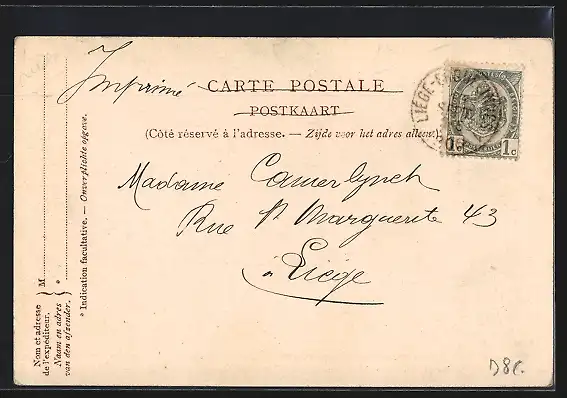 Imprimé CARTE POSTALE
POSTKAART
(Côté réservé à l'adresse. — Zijde voor het adres alleen.)
Madame Camerlynck
Rue St Marguerite 43
à Liège
Nom et adresse
de l'expéditeur.
Naam en adres
van den afzender.
M
*
* Indication facultative. — Onverplichte opgave.
1c
D8C.